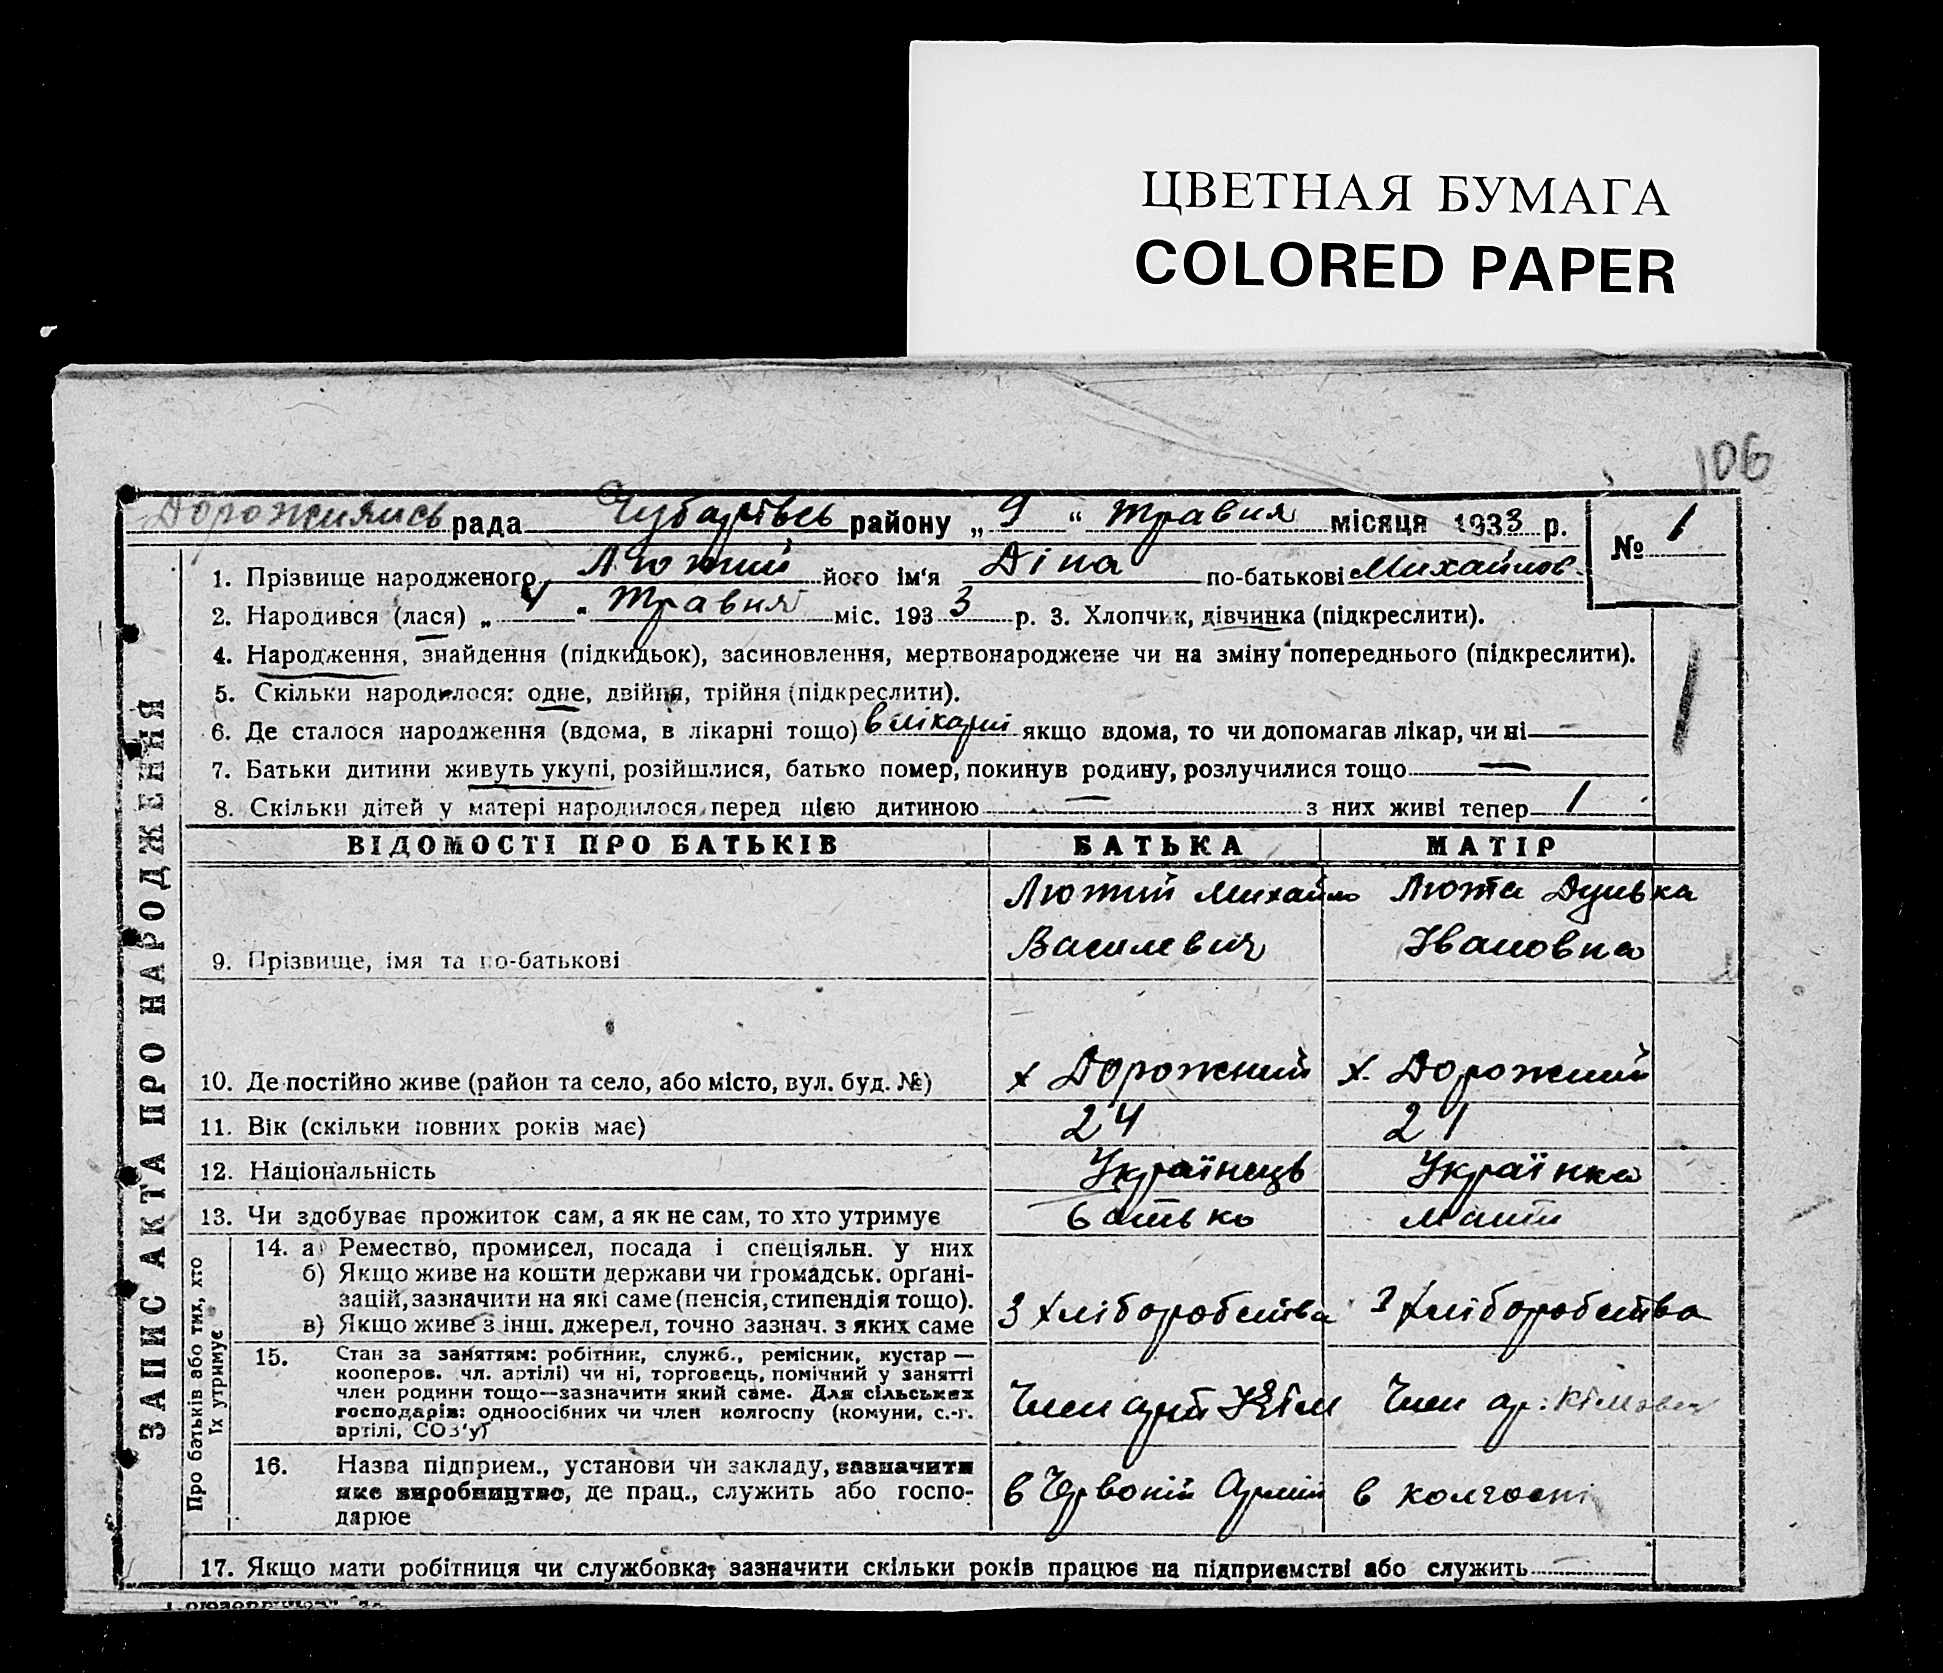 ЦВЕТНАЯ БУМАГА
COLORED PAPER
106
рада Чубарівсь району „ 9 “ Травня місяця 1933 р.
№ 1
1. Прізвище народженого Лютий його ім'я Діна по-батькові Михайлов.
2. Народився (лася) „ 4 “ Травня міс. 1933 р. 3. Хлопчик, дівчинка (підкреслити).
4. Народження, знайдення (підкидьок), засиновлення, мертвонароджене чи на зміну попереднього (підкреслити).
5. Скільки народилося: одне, двійня, трійня (підкреслити).
6. Де сталося народження (вдома, в лікарні тощо) в лікарні якщо вдома, то чи допомагав лікар, чи ні —
7. Батьки дитини живуть укупі, розійшлися, батько помер, покинув родину, розлучилися тощо —
8. Скільки дітей у матері народилося перед цією дитиною — з них живі тепер 1
ЗАПИС АКТА ПРО НАРОДЖЕННЯ
ВІДОМОСТІ ПРО БАТЬКІВ БАТЬКА МАТІР
9. Прізвище, імя та по-батькові
Лютий Михайло Василевич
Люта Дунька Івановна
10. Де постійно живе (район та село, або місто, вул. буд. №) х Дорожний х. Дорожний
11. Вік (скільки повних років має) 24 21
12. Національність Українець Українка
13. Чи здобуває прожиток сам, а як не сам, то хто утримує батько мати
Про батьків або тих, хто їх утримує
14. а) Ремество, промисел, посада і спеціяльн. у них
б) Якщо живе на кошти держави чи громадськ. орґані-
зацій, зазначити на які саме (пенсія, стипендія тощо).
в) Якщо живе з інш. джерел, точно зазнач. з яких саме
З Хліборобства З Хліборобства
15. Стан за заняттям: робітник, служб., ремісник, кустар —
кооперов. чл. артілі) чи ні, торговець, помічний у занятті
член родини тощо—зазначити який саме. Для сільських
господарів: одноосібних чи член колгоспу (комуни, с.-г.
артілі, СОЗ'у)
Член Член ар:
16. Назва підприєм., установи чи закладу, зазначити
яке виробництво, де прац., служить або госпо-
дарює
в Червоній Армії в колгоспі
17. Якщо мати робітниця чи службовка, зазначити скільки років працює на підприємстві або служить —